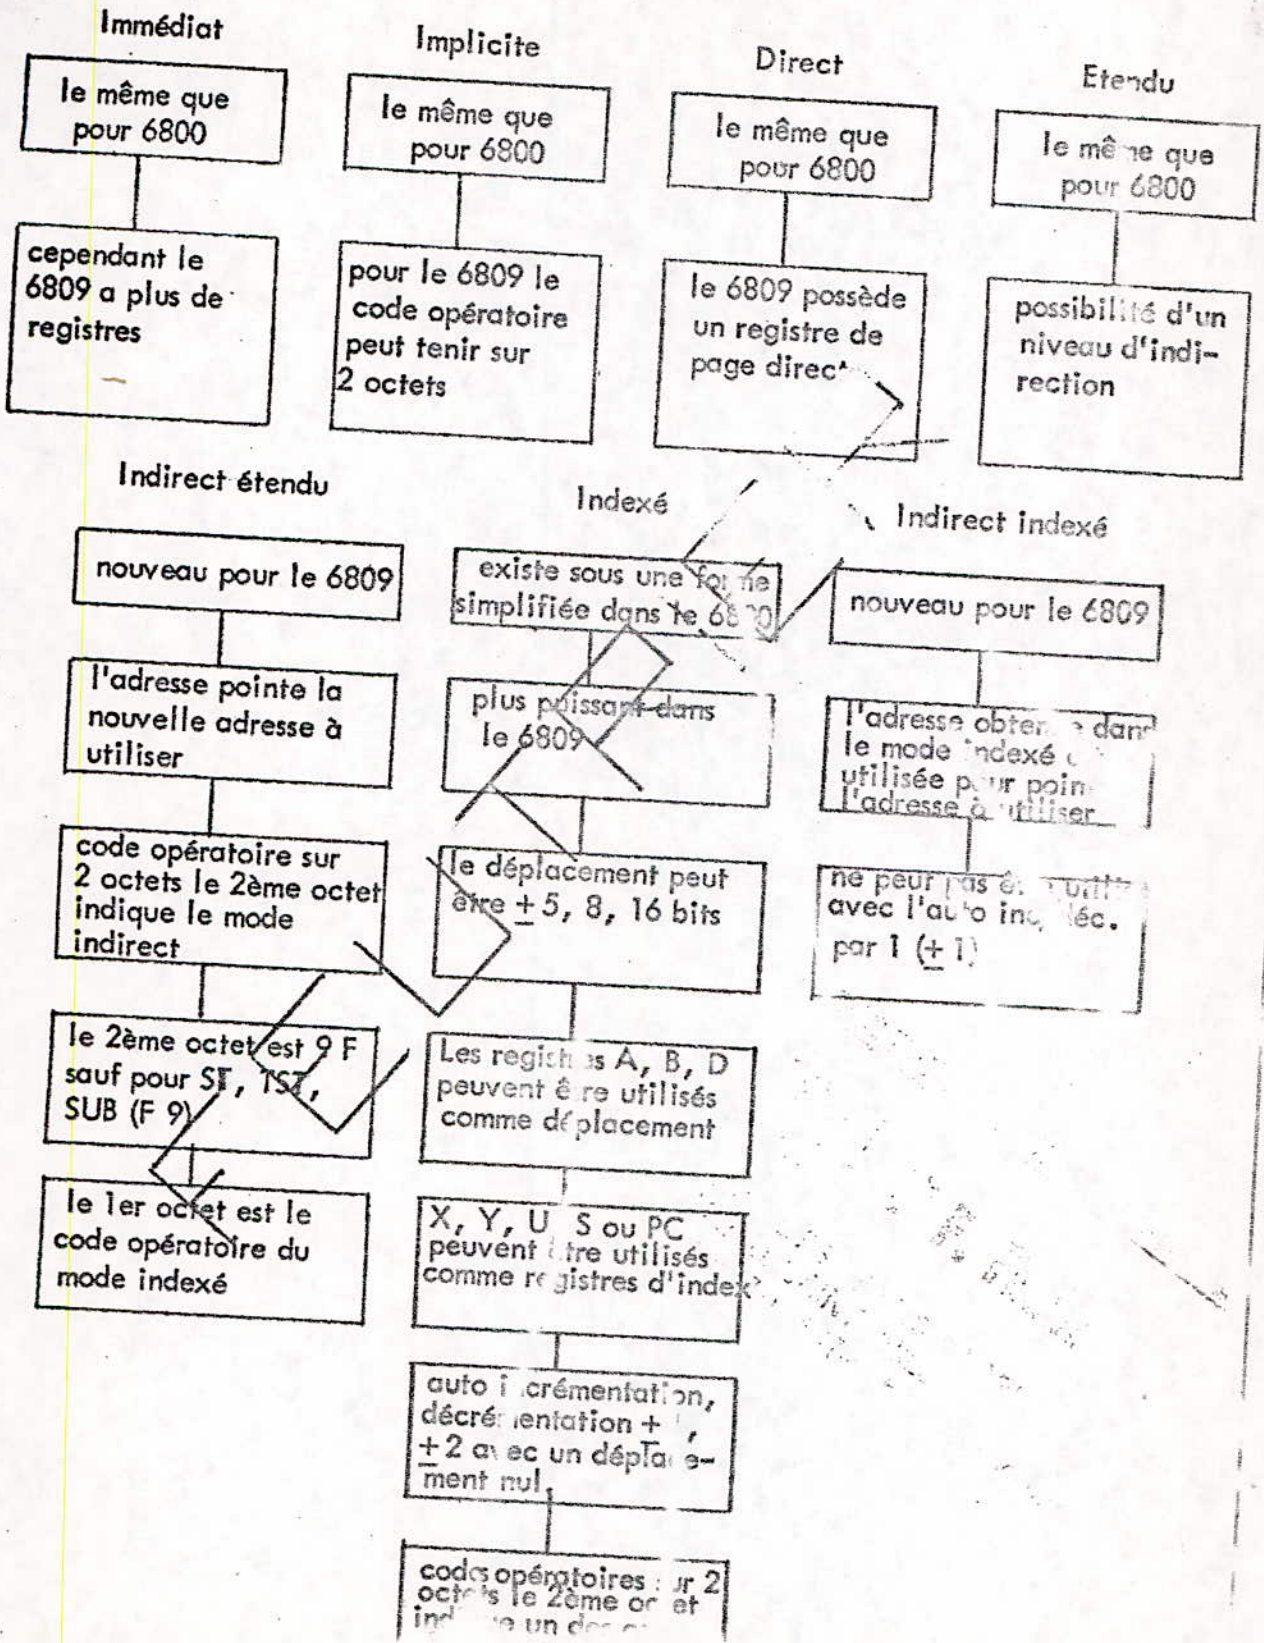 Immédiat
le même que
pour 6800
cependant le
6809 a plus de
registres
Implicite
le même que
pour 6800
pour le 6809 le
code opératoire
peut tenir sur
2 octets
Direct
le même que
pour 6800
le 6809 possède
un registre de
page direct
Etendu
le même que
pour 6800
possibilité d'un
niveau d'indi-
rection
Indirect étendu
nouveau pour le 6809
l'adresse pointe la
nouvelle adresse à
utiliser
code opératoire sur
2 octets le 2ème octet
indique le mode
indirect
le 2ème octet est 9 F
sauf pour ST, TST,
SUB (F 9)
le 1er octet est le
code opératoire du
mode indexé
Indexé
existe sous une forme
simplifiée dans le 6800
plus puissant dans
le 6809
le déplacement peut
être ± 5, 8, 16 bits
Les registres A, B, D
peuvent être utilisés
comme déplacement
X, Y, U S ou PC
peuvent être utilisés
comme registres d'index
auto incrémentation,
décrémentation ±
±2 avec un déplace-
ment nul.
codes opératoires sur 2
octets le 2ème octet
un
Indirect indexé
nouveau pour le 6809
l'adresse obtenue dans
le mode indexé
utilisée pour
l'adresse à utiliser
ne peur pas
avec l'auto
par 1 (± 1)